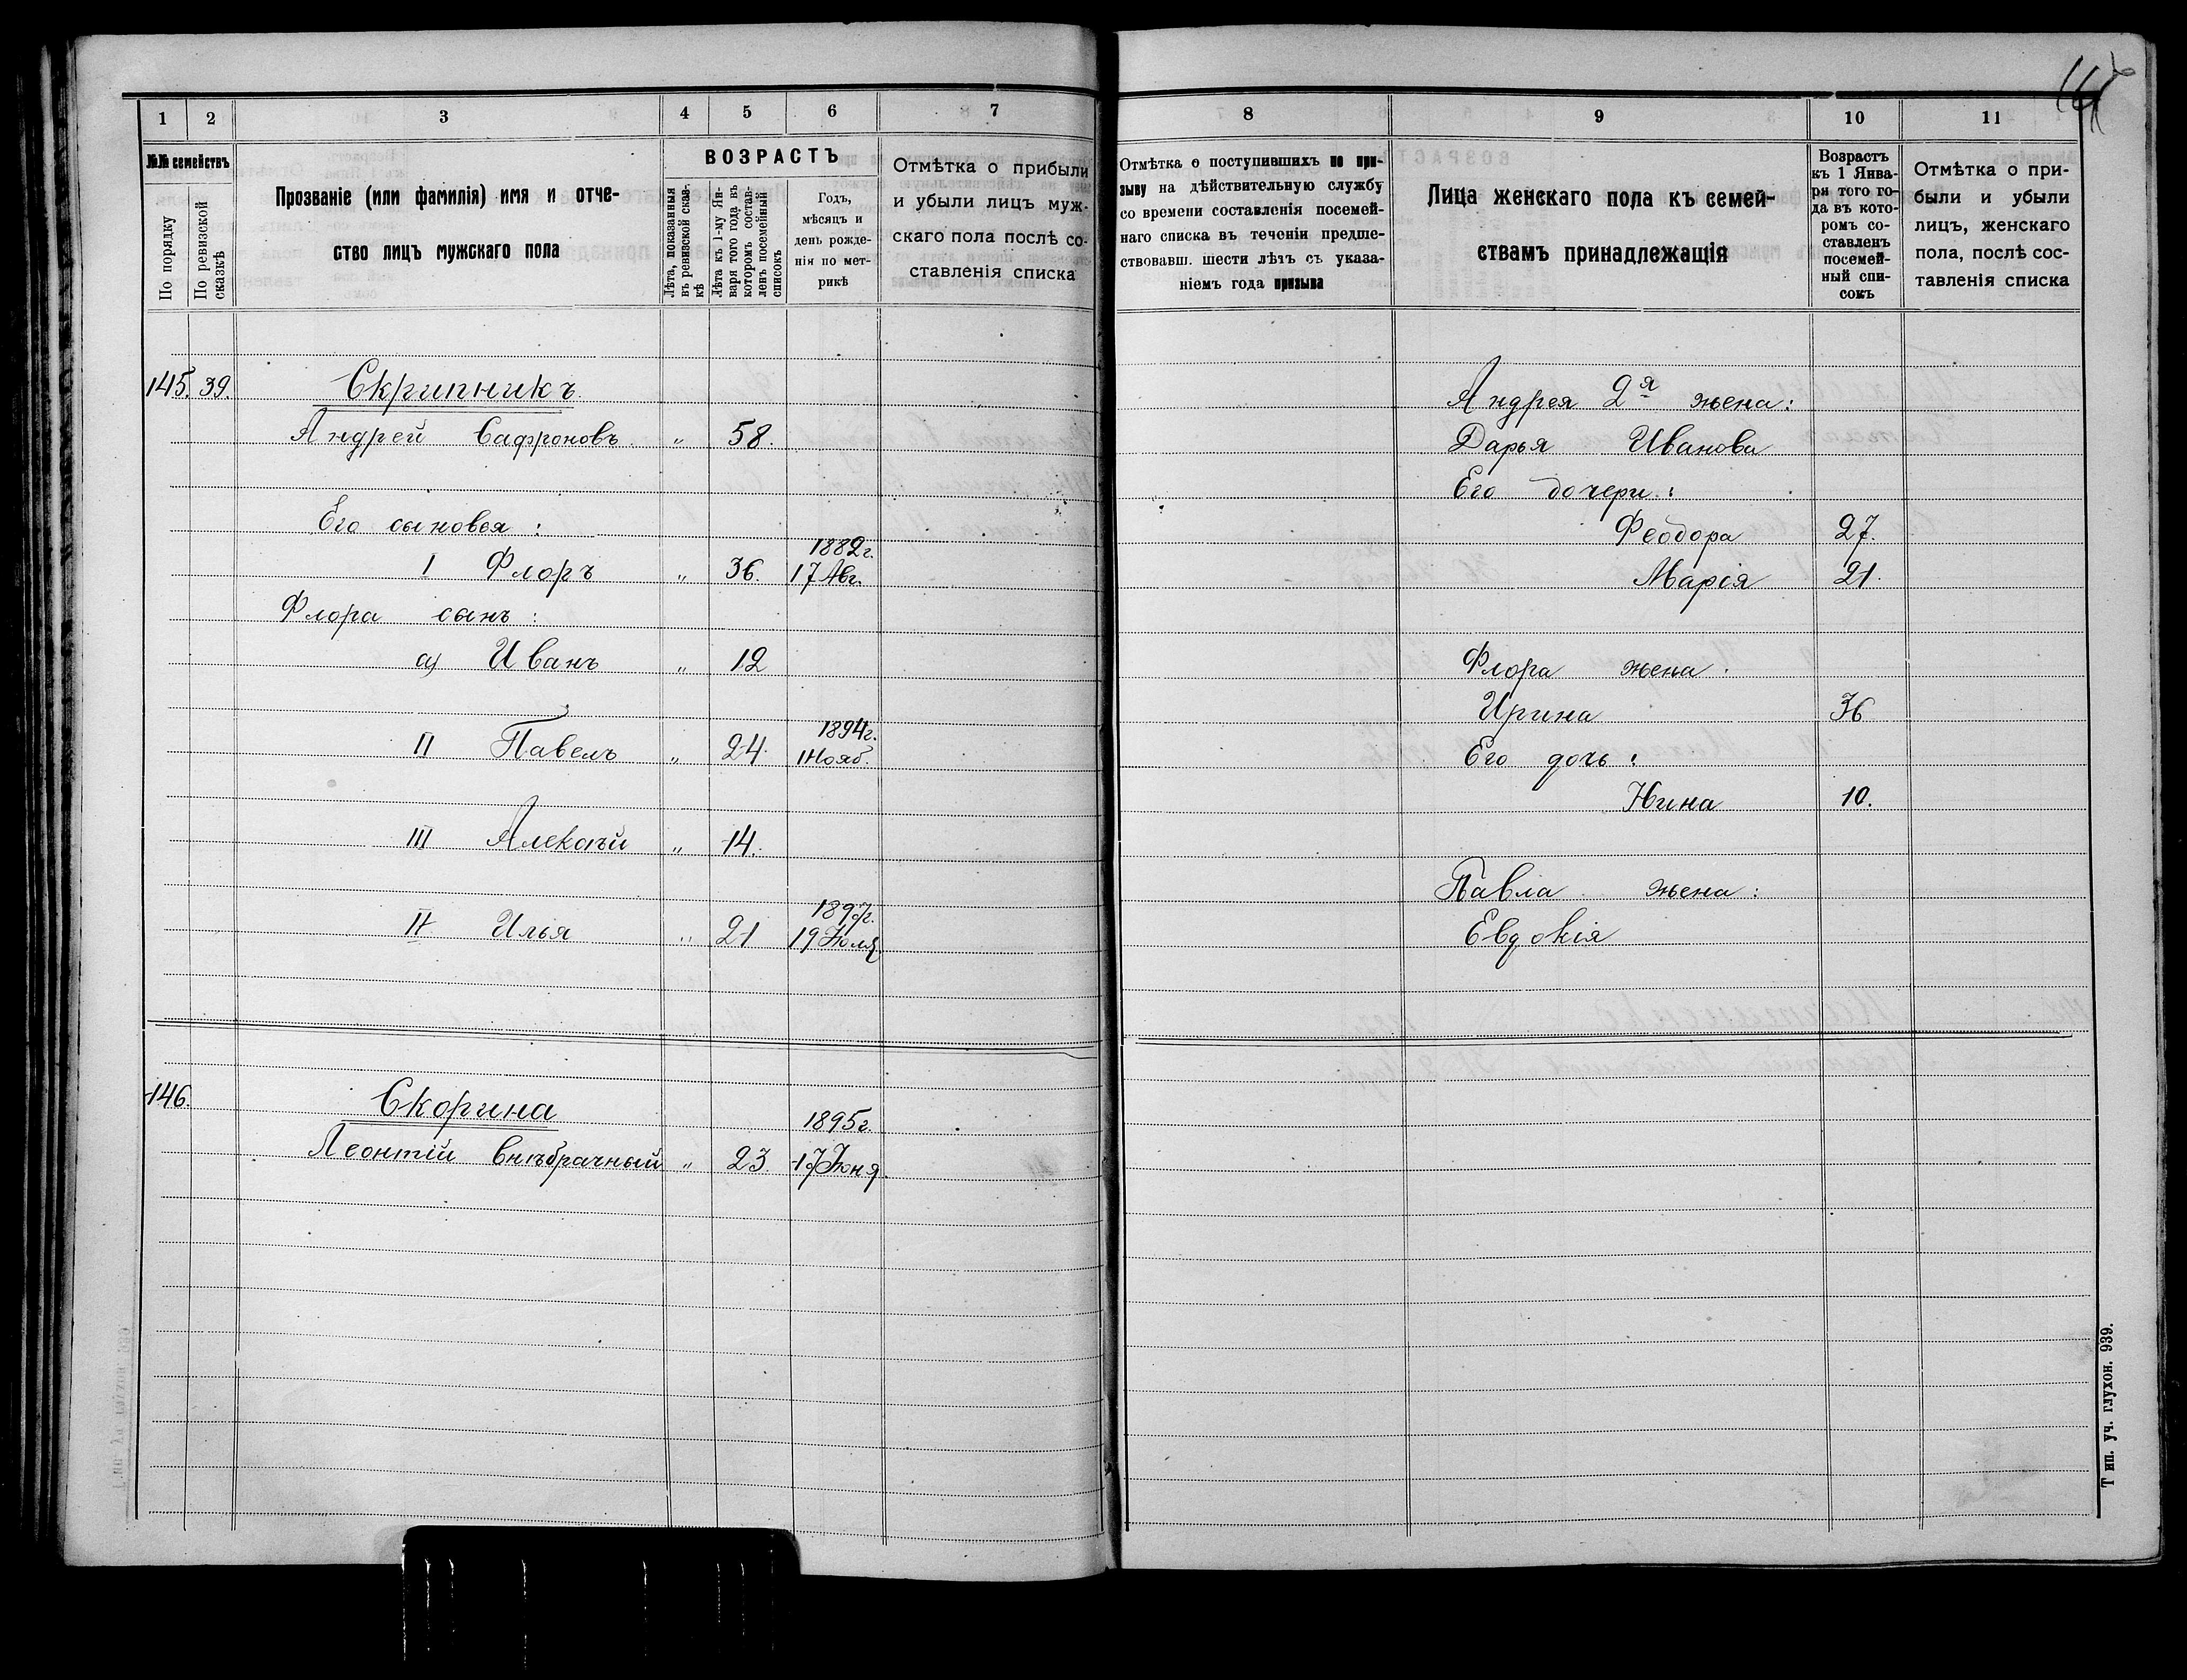 1 2 3 4 5 6 7
№№ семействъ
По порядку
По ревизской сказкѣ
Прозваніе (или фамилія) имя и отче-
ство лицъ мужскаго пола
ВОЗРАСТЪ
Лѣта, показанныя
въ ревизской сказ-
кѣ
Лѣта къ 1-му Ян-
варя того года въ
которомъ состав-
ленъ посемейный
списокъ
Годъ,
мѣсяцъ и
день рожде-
нія по мет-
рикѣ
Отмѣтка о прибыли
и убыли лицъ муж-
скаго пола послѣ со-
ставленія списка
145. 39. Скрипникъ
Андрей Сафроновъ „ 58.
Его сыновья:
1882г.
I Флоръ „ 36. 17 Авг.
Флора сынъ:
а) Иванъ „ 12
1894г.
II Павелъ „ 24. 1 Нояб.
III Алексѣй „ 14.
1897г.
IV Илья „ 21 19 Іюля
146. Скорина
1895г.
Леонтій внѣбрачный „ 23 17 Іюня
8 9 10 11
Отмѣтка о поступившихъ по при-
зыву на дѣйствительную службу
со времени составленія посемей-
наго списка въ теченіи предше-
ствовавш. шести лѣтъ съ указа-
ніемъ года призыва
Лица женскаго пола къ семей-
ствамъ принадлежащія
Возрастъ
къ 1 Янва-
ря того го-
да въ кото-
ромъ со-
ставленъ
посемей-
ный спи-
сокъ
Отмѣтка о при-
были и убыли
лицъ, женскаго
пола, послѣ сос-
тавленія списка
Андрея 2я жена:
Дарья Иванова
Его дочери:
Феодора 27.
Марія 21.
Флора жена:
Ирина 36
Его дочь:
Нина 10.
Павла жена:
Евдокія
Тип. уч. глухон. 939.